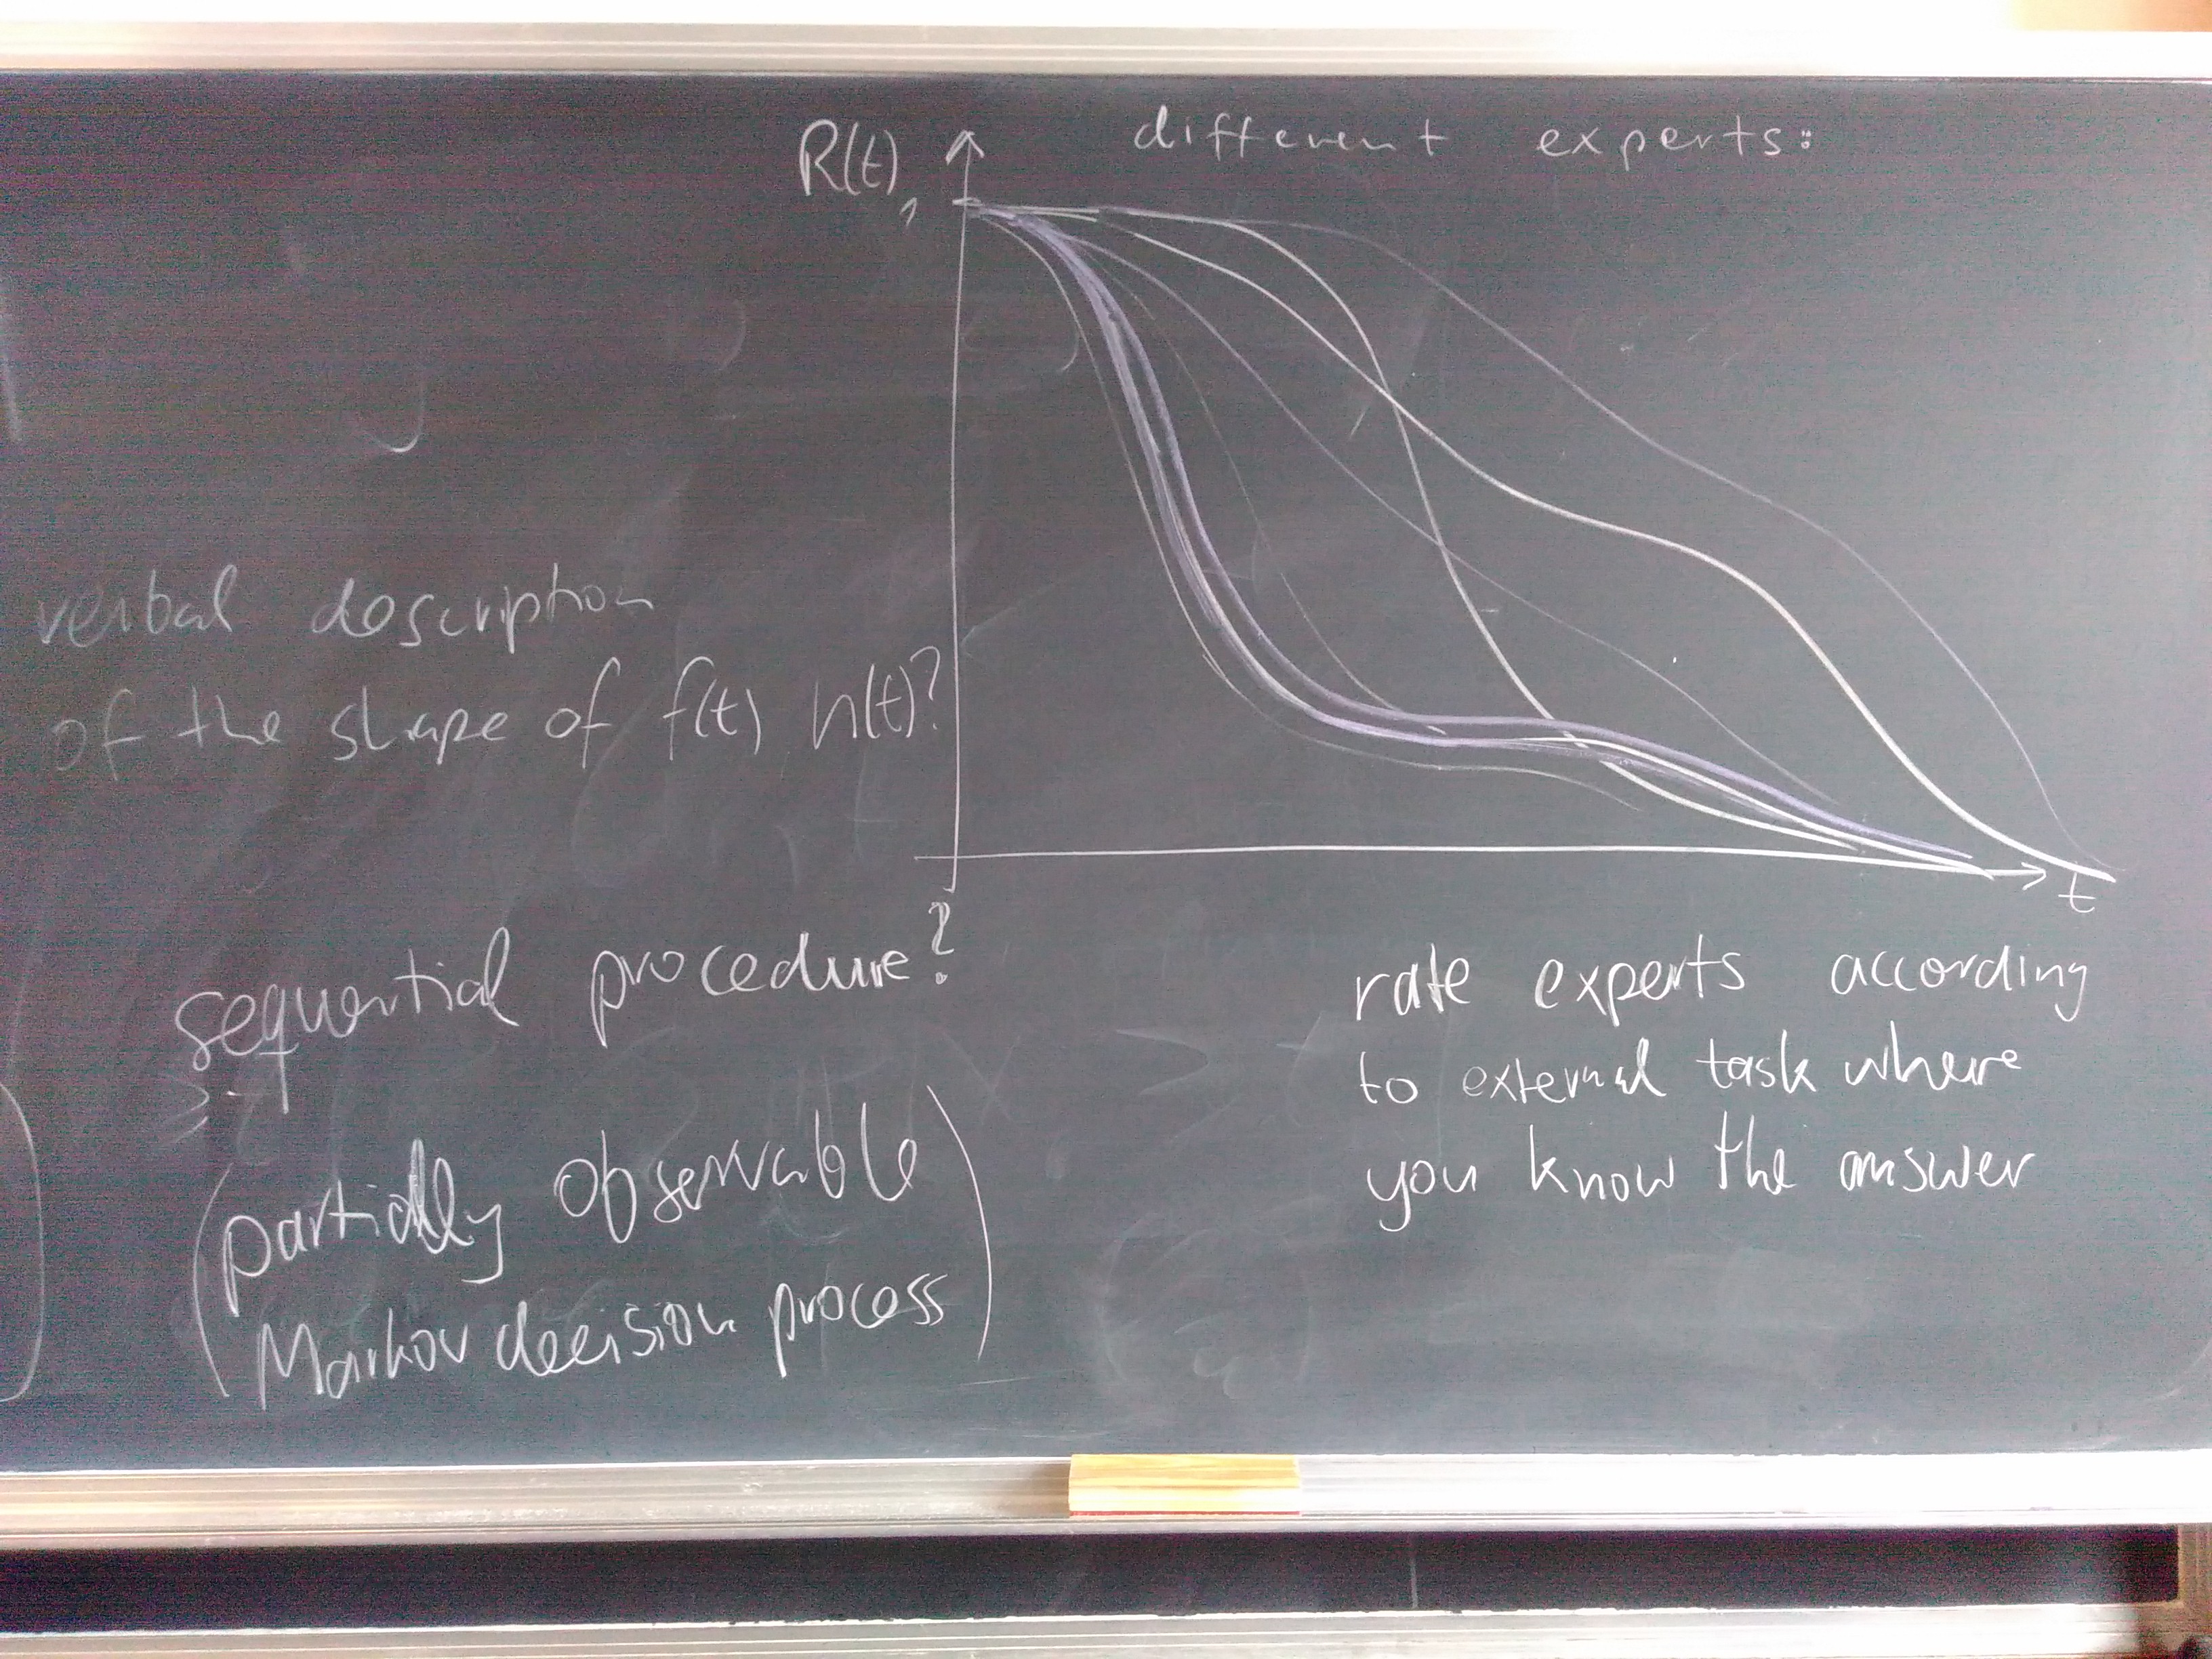 R(t)
different experts:
1
verbal description
of the shape of f(t) h(t)?
t
sequential procedure?
(partially observable
Markov decision process)
rate experts according
to external task where
you know the answer